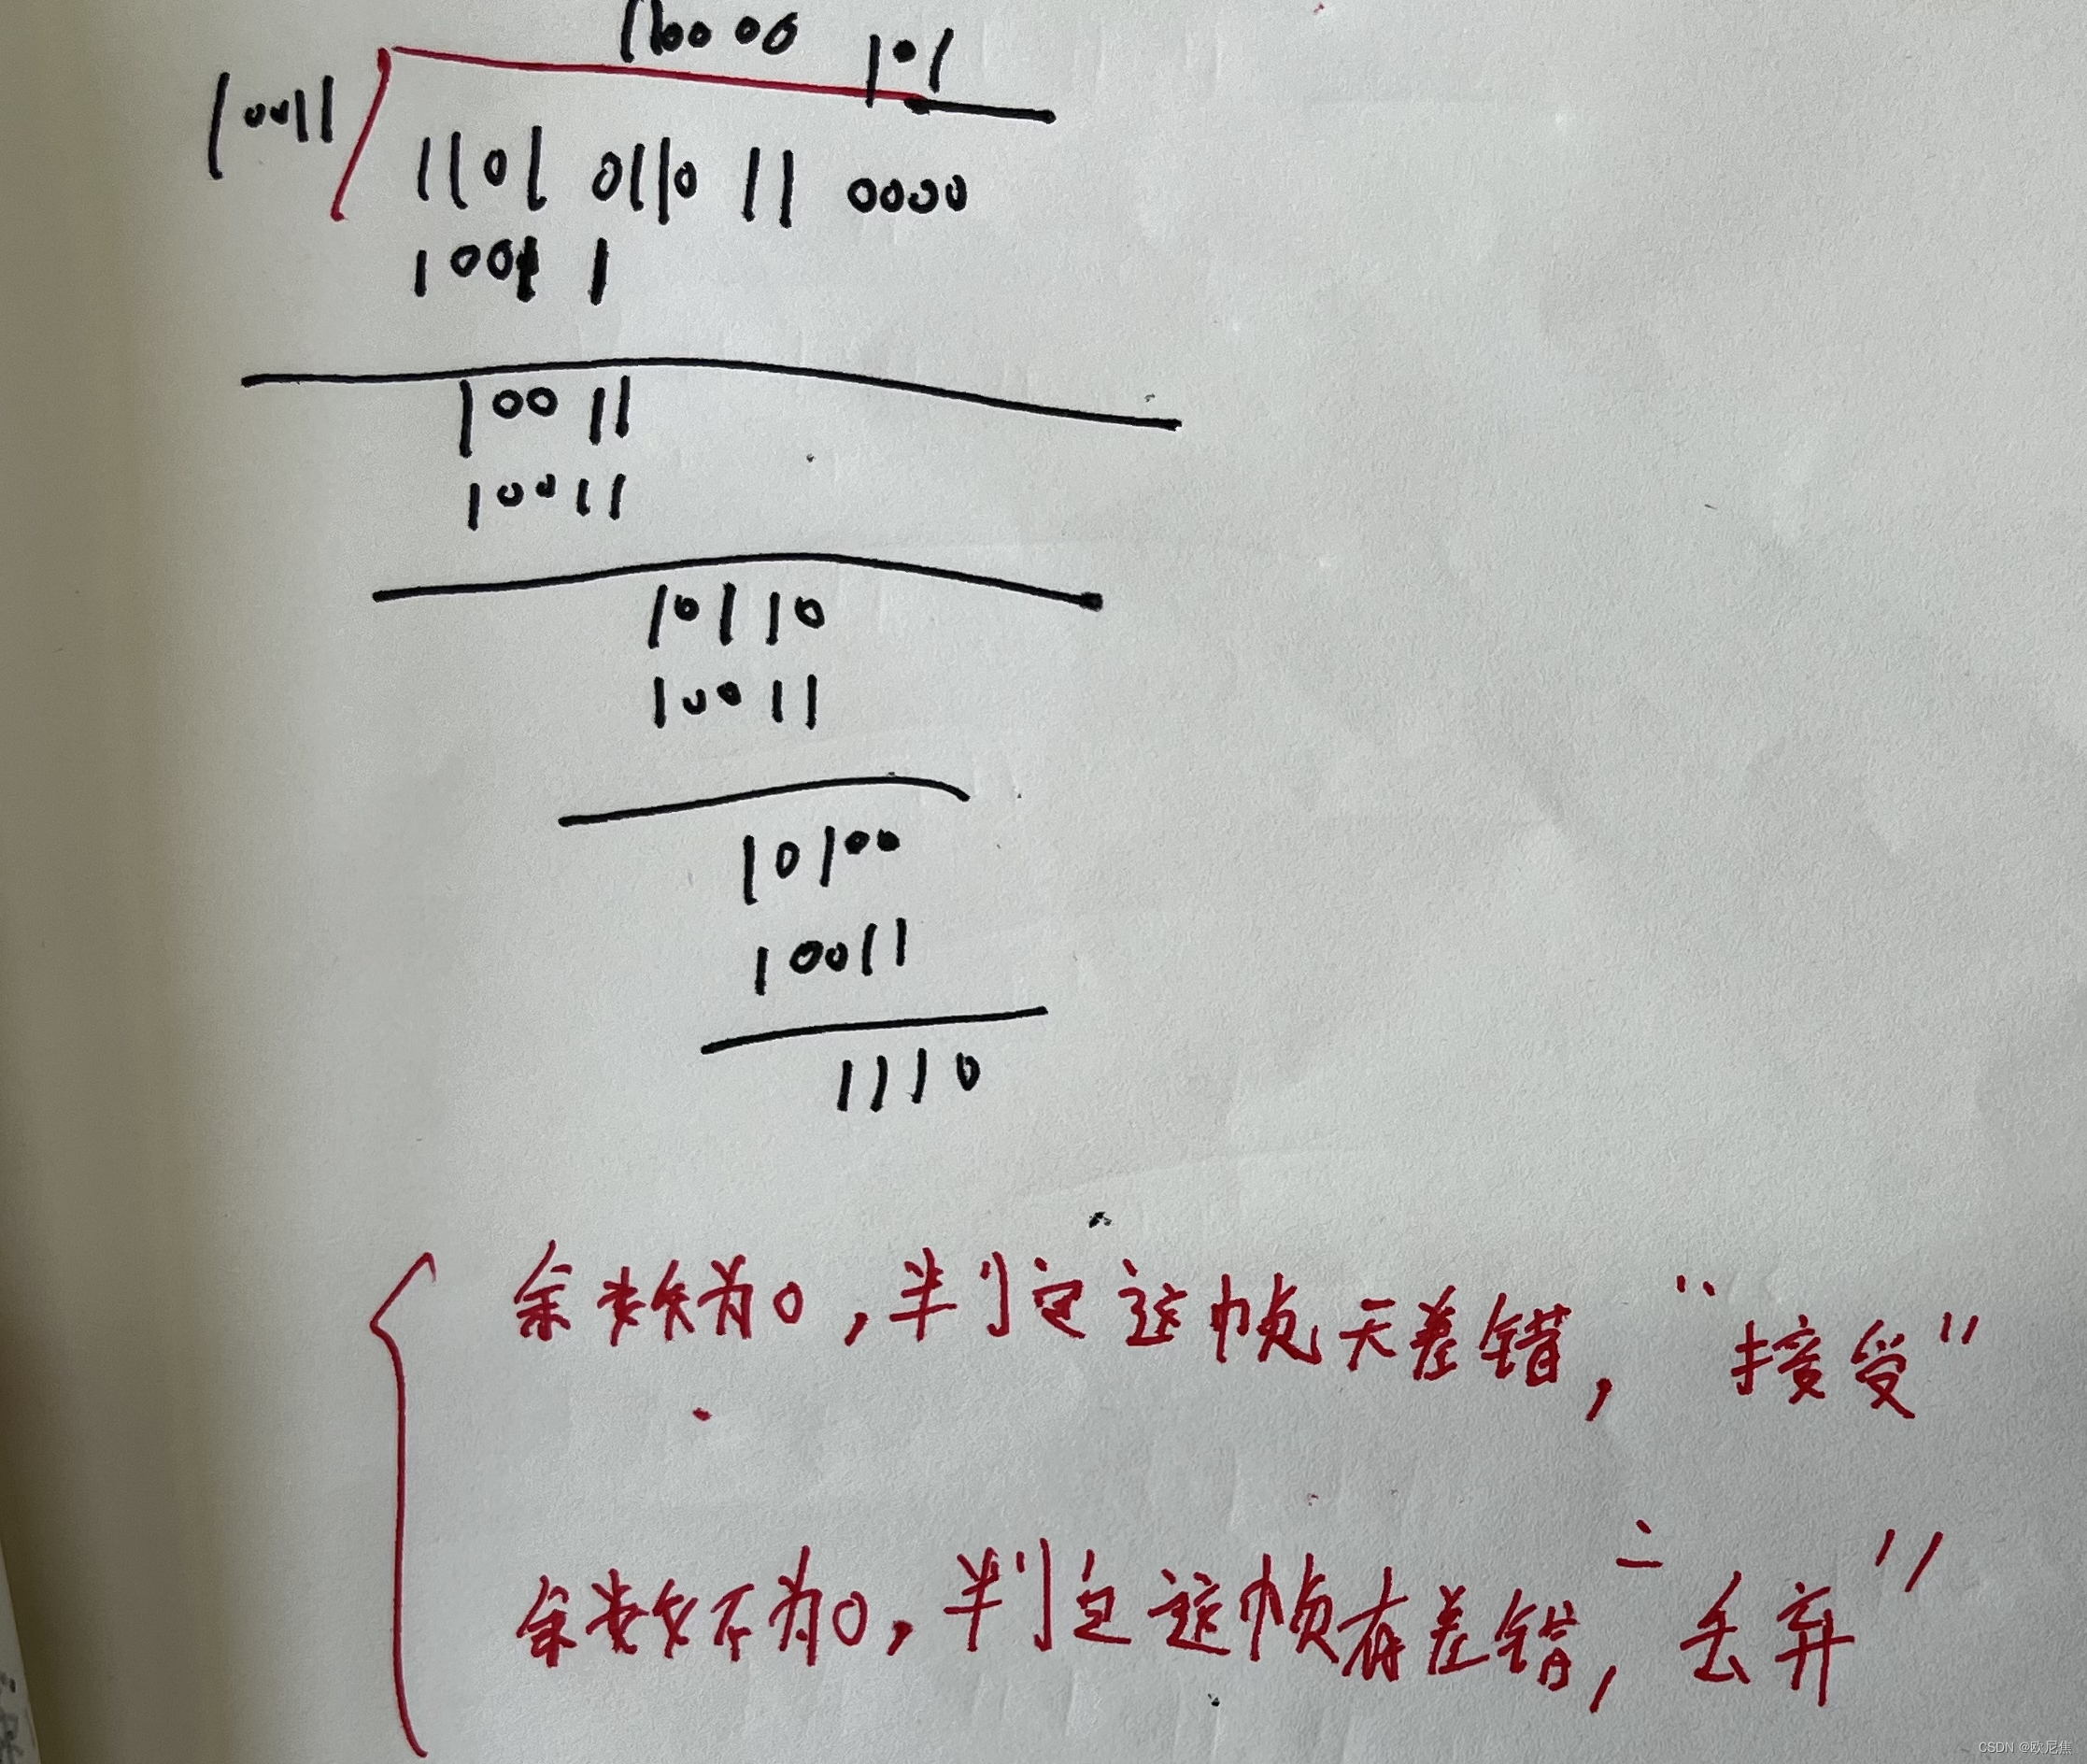 110000 101
10011
1101 0110 11 0000
1001 1
100 11
10011
10110
10011
10100
10011
1110
余数为0，判定这帧无差错，“接受”
余数不为0，判定这帧有差错，“丢弃”
CSDN @欧尼焦